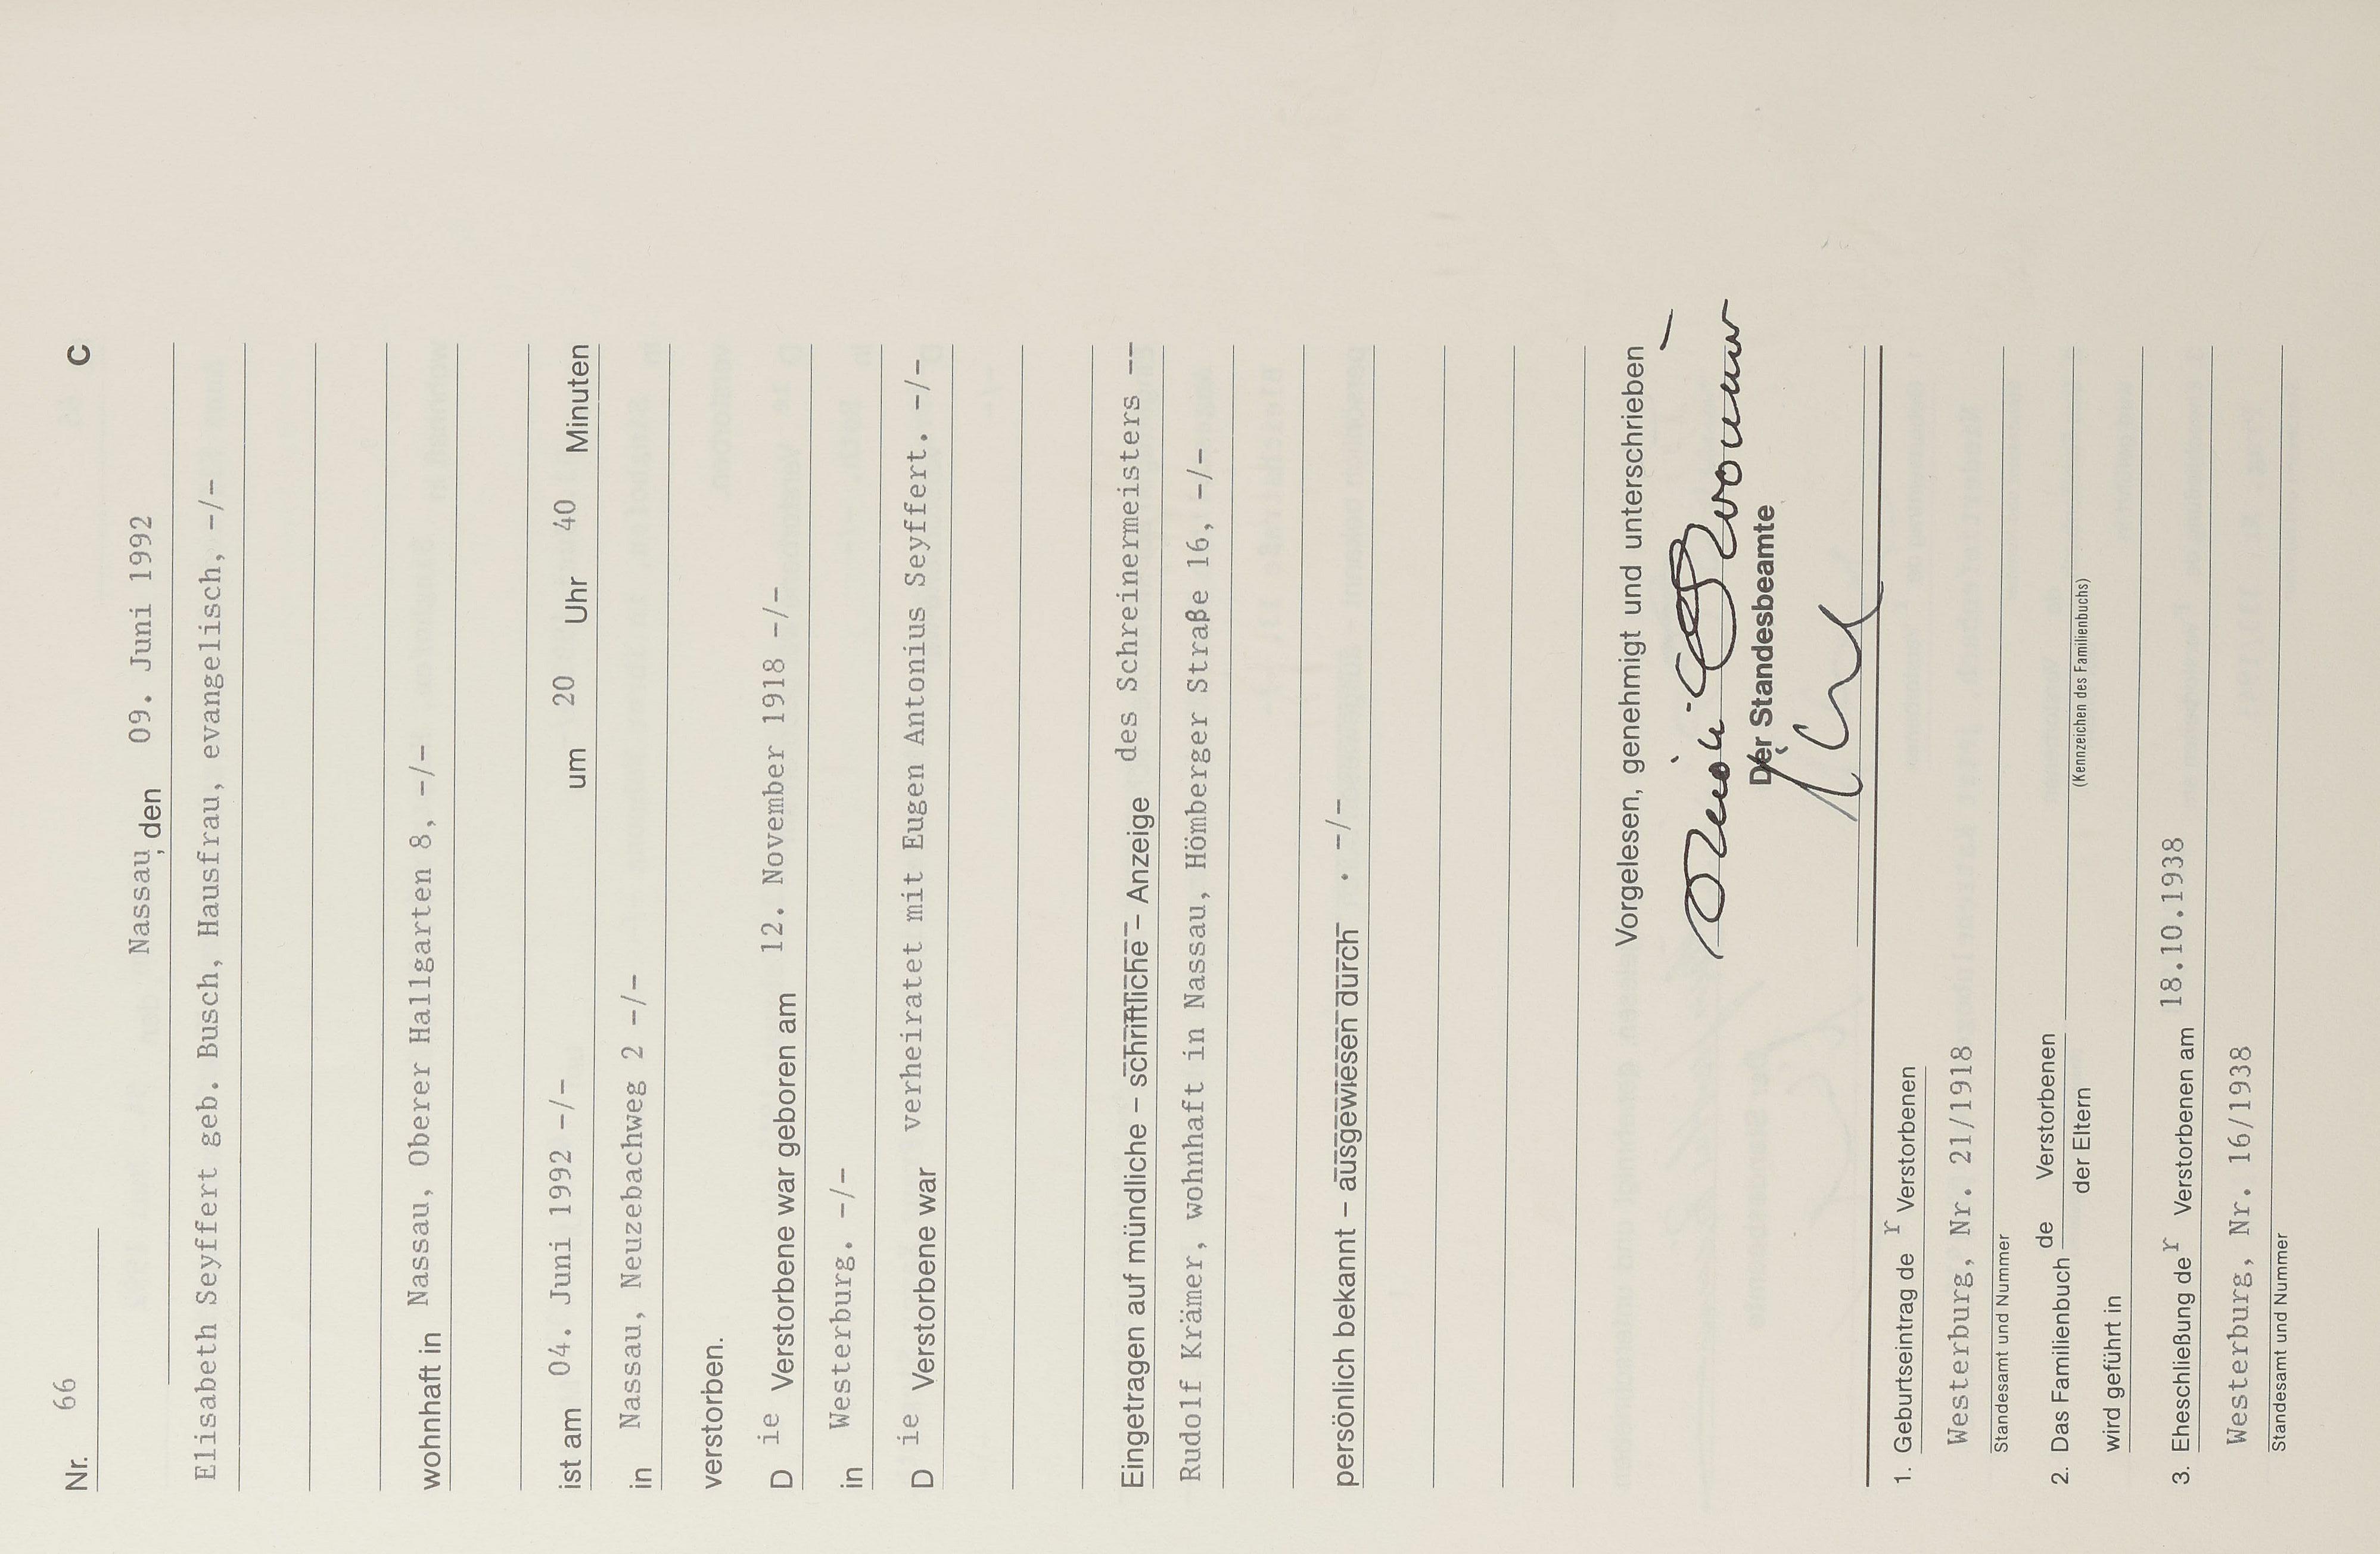 Nr. 66 C
Nassau, den 09. Juni 1992
Elisabeth Seyffert geb. Busch, Hausfrau, evangelisch, -/-
wohnhaft in Nassau, Oberer Hallgarten 8, -/-
ist am 04. Juni 1992 -/- um 20 Uhr 40 Minuten
in Nassau, Neuzebachweg 2 -/-
verstorben.
D ie Verstorbene war geboren am 12. November 1918 -/-
in Westerburg. -/-
D ie Verstorbene war verheiratet mit Eugen Antonius Seyffert. -/-
Eingetragen auf mündliche – schriftliche – Anzeige des Schreinermeisters --
Rudolf Krämer, wohnhaft in Nassau, Hömberger Straße 16, -/-
persönlich bekannt – ausgewiesen durch . -/-
Vorgelesen, genehmigt und unterschrieben
Der Standesbeamte
1. Geburtseintrag de r Verstorbenen
Westerburg, Nr. 21/1918
Standesamt und Nummer
2. Das Familienbuch de Verstorbenen
der Eltern
(Kennzeichen des Familienbuchs)
wird geführt in
3. Eheschließung de r Verstorbenen am 18.10.1938
Westerburg, Nr. 16/1938
Standesamt und Nummer